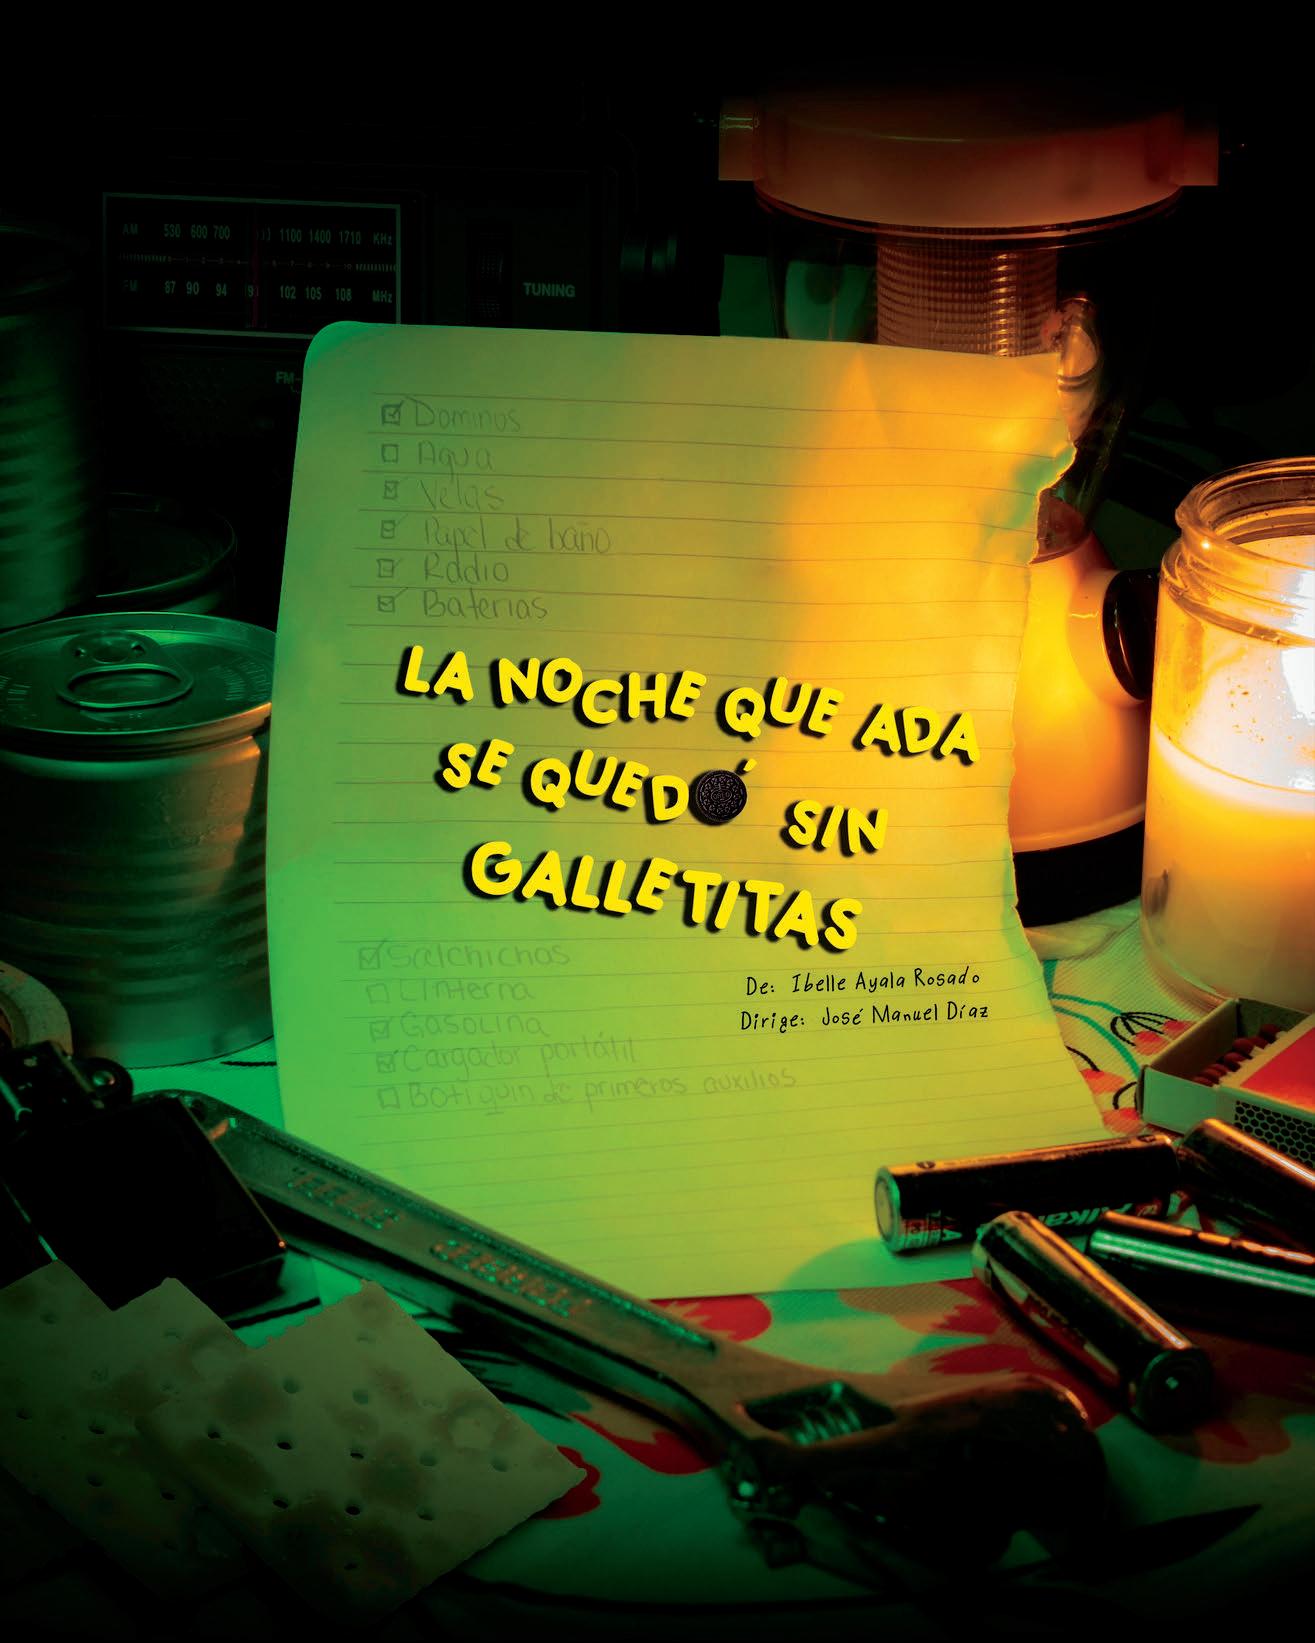 AM 530 600 700 1100 1400 1710 KHz
FM 87 90 94 102 105 108 MHz
TUNING
FM-
Dominos
Agua
Velas
Papel de baño
Radio
Baterias
LA NOCHE QUE ADA
SE QUEDÓ SIN
GALLETITAS
Salchichas
Linterna
Gasolina
Cargador portátil
Botiquin de primeros auxilios
De: Ibelle Ayala Rosado
Dirige: José Manuel Díaz